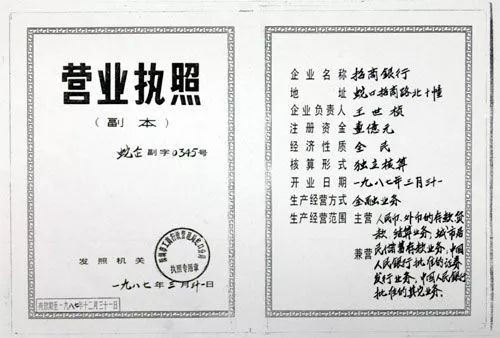 营业执照
(副本)
蛇企副字0345号
发照机关
执照专用章
一九八七年三月卅一日
有效期至一九八七年十二月三十一日
企业名称 招商银行
地址 蛇口招商路北十幢
企业负责人 王世桢
注册资金 壹億元
经济性质 全民
核算形式 独立核算
开业日期 一九八七年三月卅一
生产经营方式 金融业务
生产经营范围 主营 人民币、外币的存款贷
款、结算业务、城市居
兼营 民储蓄存款业务、中国
人民银行批准的证券
发行业务、中国人民银行
批准的其它业务。